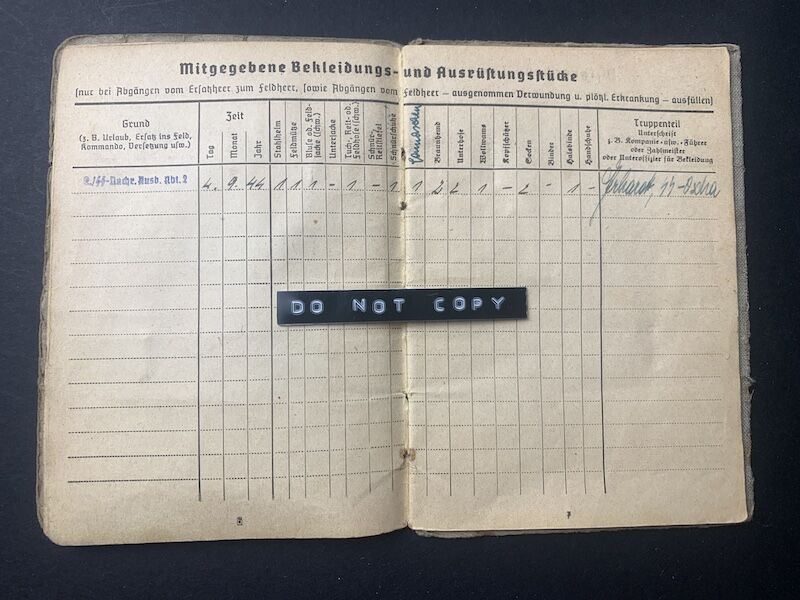 Mitgegebene Bekleidungs- und Ausrüstungsstücke
(nur bei Abgängen vom Ersatzheer zum Feldheer, sowie Abgängen vom Feldheer – ausgenommen Verwundung u. plötzl. Erkrankung – ausfüllen)
Grund
(z. B. Urlaub, Ersatz ins Feld,
Kommando, Versetzung usw.)
Zeit
Tag
Monat
Jahr
Stahlhelm
Feldmütze
Bluse od. Feld-
jacke (schw.)
Unterjacke
Tuch-, Reit- od.
Feldhose (schw.)
Schnür-,
Reitstiefel
Schnürschuhe
Gamaschen
Braunhemd
Unterhose
Wollwams
Kopfschützer
Socken
Binder
Halsbinde
Handschuhe
Truppenteil
Unterschrift
z. B. Kompanie- usw. -Führer
oder Zahlmeister
oder Unteroffizier für Bekleidung
2./SS-Nachr. Ausb. Abt. 2
4. 9. 44 1 1 1 – 1 – 1 1 2 2 1 – 2 – 1 –
DO NOT COPY
6
7